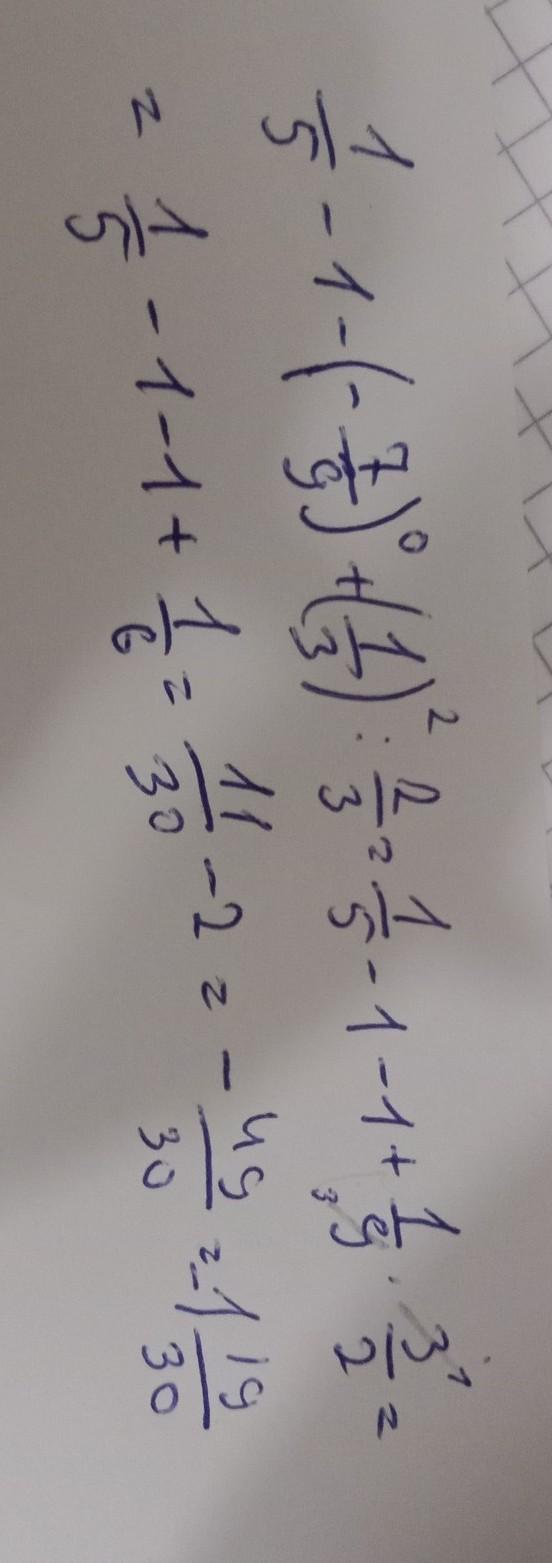 1/5 - 1 - (- 7/9)⁰ + (1/3)² : 2/3 = 1/5 - 1 - 1 + 1/9 3 · 3/2 1 =
= 1/5 - 1 - 1 + 1/6 = 11/30 - 2 = - 49/30 = -1 19/30